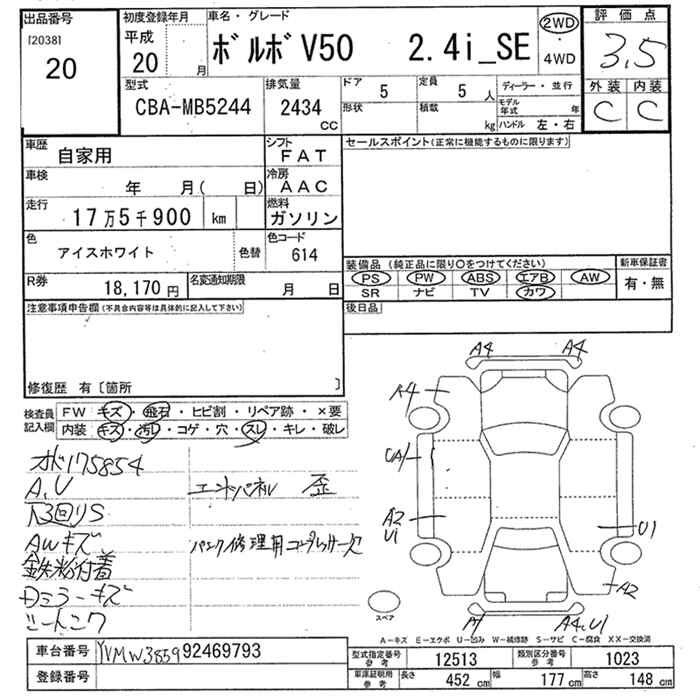 出品番号
[2038]
20
初度登録年月
平成
20 月
車名・グレード
ボルボ V50 2.4i_SE
2WD
4WD
評価点
3.5
外装 内装
C C
型式
CBA-MB5244
排気量
2434
CC
ドア 5
定員 5 人
形状
積載 kg
ディーラー・並行
モデル年式 年
ハンドル 左・右
車歴
自家用
シフト
FAT
車検
年 月( 日)
冷房
AAC
走行
17万5千900 km
燃料
ガソリン
色
アイスホワイト
色替
色コード
614
R券
18,170 円
名変通知期限
月 日
セールスポイント(正常に機能するものに限ります)
装備品 (純正品に限り○をつけてください)
PS PW ABS エアB AW
SR ナビ TV カワ
新車保証書
有・無
後日品
注意事項申告欄(不具合内容等は具体的に記入して下さい)
修復歴 有〔箇所 〕
検査員
記入欄
FW キズ・飛石・ヒビ割・リペア跡・×要
内装 キズ・汚レ・コゲ・穴・スレ・キレ・破レ
175854
A.U
エンドパネル 歪
回りS
AWキズ
パンク修理用コンプレッサー欠
鉄粉付着
Dミラーキズ
A4 A4
A4
UA1
A2
U1
U1
A2
A1
A4.U1
スペア
A-キズ E-エクボ U-凹み W-補修跡 S-サビ C-腐食 XX-交換済
車台番号
YVMW385992469793
登録番号
型式指定番号
参考
12513
類別区分番号
参考
1023
車庫証明用
参考
長さ 452 cm
幅 177 cm
高さ 148 cm